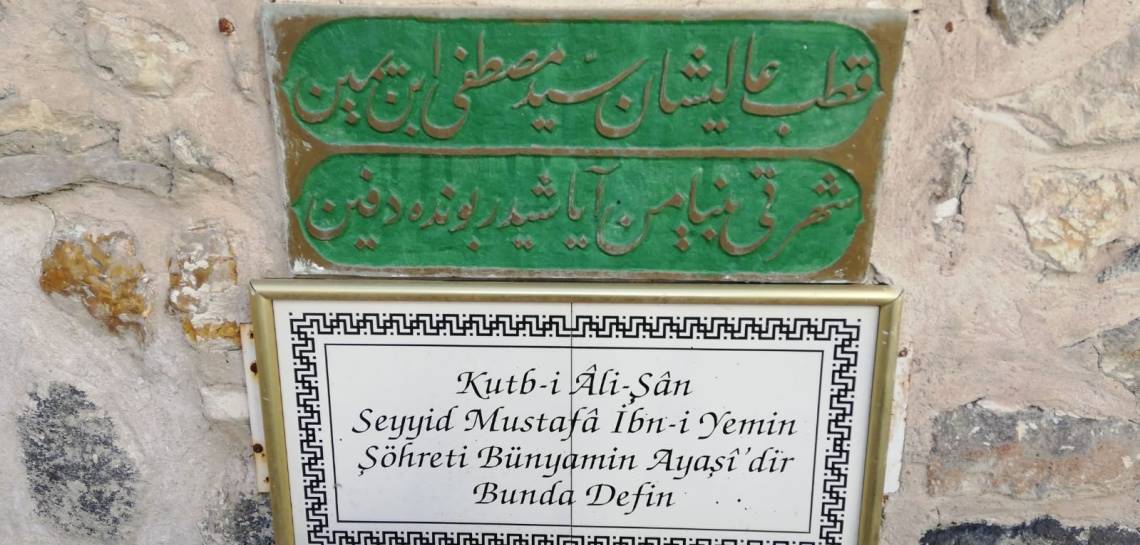 قطب عاليشان سيّد مصطفى ابن يمين
شهرتى بنيامن آياشيدر بونده دفين
Kutb-i Âli-Şân
Seyyid Mustafâ İbn-i Yemin
Şöhreti Bünyamin Ayaşî’dir
Bunda Defin